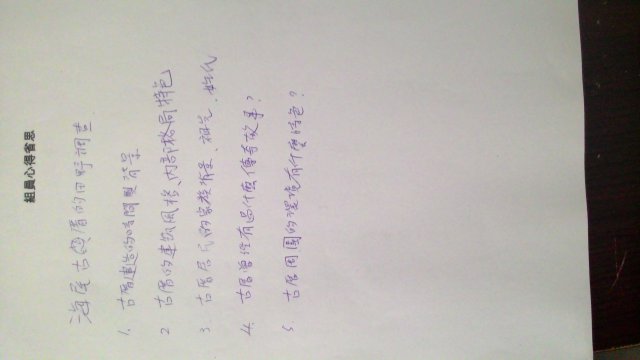 組員心得省思
古厝的田野調查
1. 古厝建造的時間與背景
2 古厝的建築風格、內部格局特色
3. 古厝居民的家族背景、祖先、姓氏
4. 古厝曾經有過什麼傳奇故事?
5 古厝周圍的環境有什麼特色?